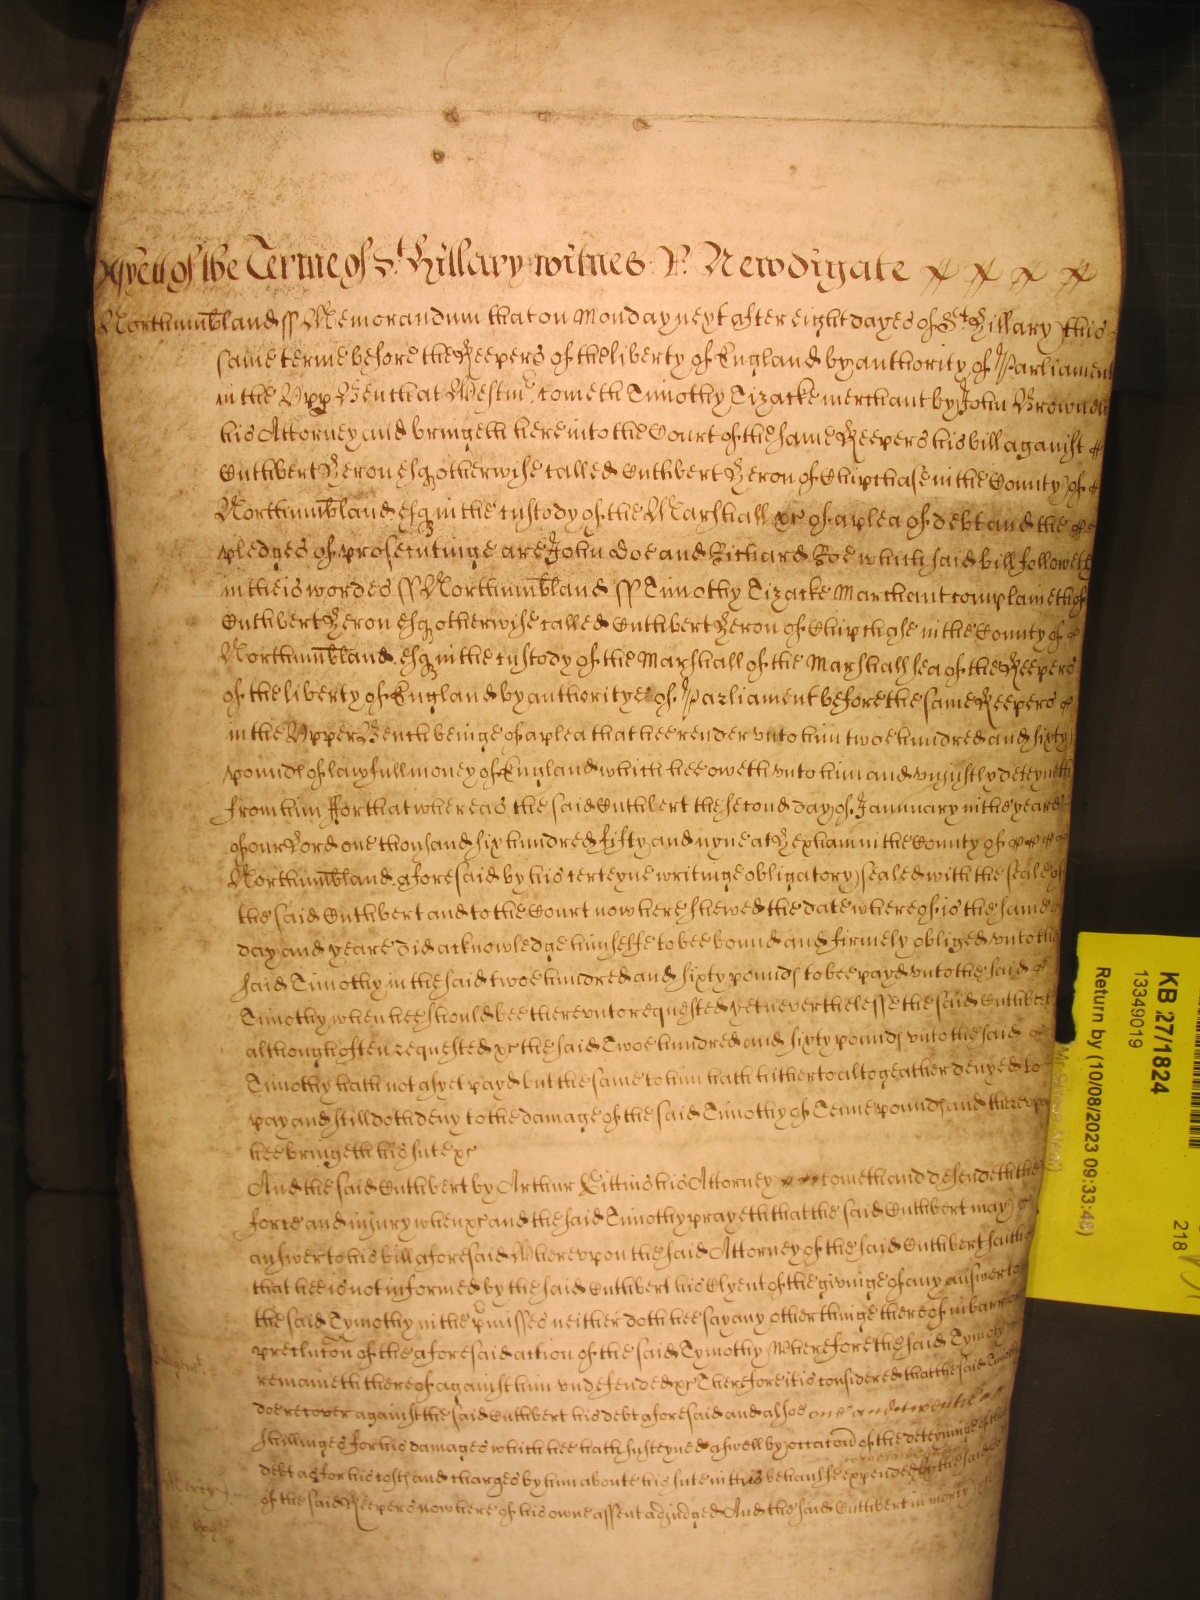 yett of the Terme of St. Hillary witnes R. Newdigate
Northumbland ss Memorandum that on Monday next after eight dayes of St. Hillary this
same terme before the Keepers of the liberty of England by authority of Parliament
in the Upp Bench at Westmr. cometh Timothy Tizacke merchant by John Browne
his Attorney and bringeth here into the Court of the same Keepers his bill against
Cuthbert Heron esq otherwise called Cuthbert Heron of Chipchase in the County of
Northumbland esq in the custody of the Marshall &c of a plea of debt and the
pledges of prosecutinge are John Doe and Richard Roe which said bill followeth
in theis wordes ss Northumbland ss Timothy Tizacke Marchant complaineth of
Cuthbert Heron esq otherwise called Cuthbert Heron of Chipchase in the County of
Northumbland esq in the custody of the Marshall of the Marshallsea of the Keepers
of the liberty of England by authoritye of Parliament before the same Keepers
in the Upper Bench beinge of a plea that hee render unto him twoe hundred and sixty
pounds of lawfull money of England which hee oweth unto him and uniustly deteyneth
from him ffor that whereas the said Cuthbert the second day of Januuary in the yeare
of our Lord one thousand six hundred fifty and nyne at Hexham in the County of
Northumbland aforesaid by his certeyne writinge obligatory sealed with the seale of
the said Cuthbert and to the Court now here shewed the date whereof is the same
day and yeare did acknowledge himselfe to bee bound and firmely obliged unto the
said Timothy in the said twoe hundred and sixty pounds to bee payd unto the said
Timothy when hee should bee thereunto requested yet neverthelesse the said Cuthbert
although often requested &c the said Twoe hundred and sixty pounds unto the said
Timothy hath not as yet payd but the same to him hath hitherto altogeather denyed to
pay and still doth deny to the damage of the said Timothy of Tenne pounds and thereupon
hee bringeth his sute &c
And the said Cuthbert by Arthur Gittins his Attorney cometh and defendeth the
force and injury when &c and the said Timothy prayeth that the said Cuthbert may
answer to his bill aforesaid Whereupon the said Attorney of the said Cuthbert saith
that hee is not informed by the said Cuthbert his Clyent of the givinge of any answer to
the said Tymothy in the pmisses neither doth hee say any other thinge thereof in barr or
preclucon of the aforesaid action of the said Tymothy Wherefore the said Tymothy
remaineth thereof against him undefended &c Therefore it is considered that the said Timothy
doe recover against the said Cuthbert his debt aforesaid and alsoe one and twentie
shillinges for his damages which hee hath susteyned aswell by occacon of the deteyninge of that
debt as for his costs and charges by him aboute his sute in this behaulfe expended by the said Court
of the said Keepers now here of his owne assent adjudged And the said Cuthbert in mercy
KB 27/1824
13349019
Return by (10/08/2023 09:33:48)
218